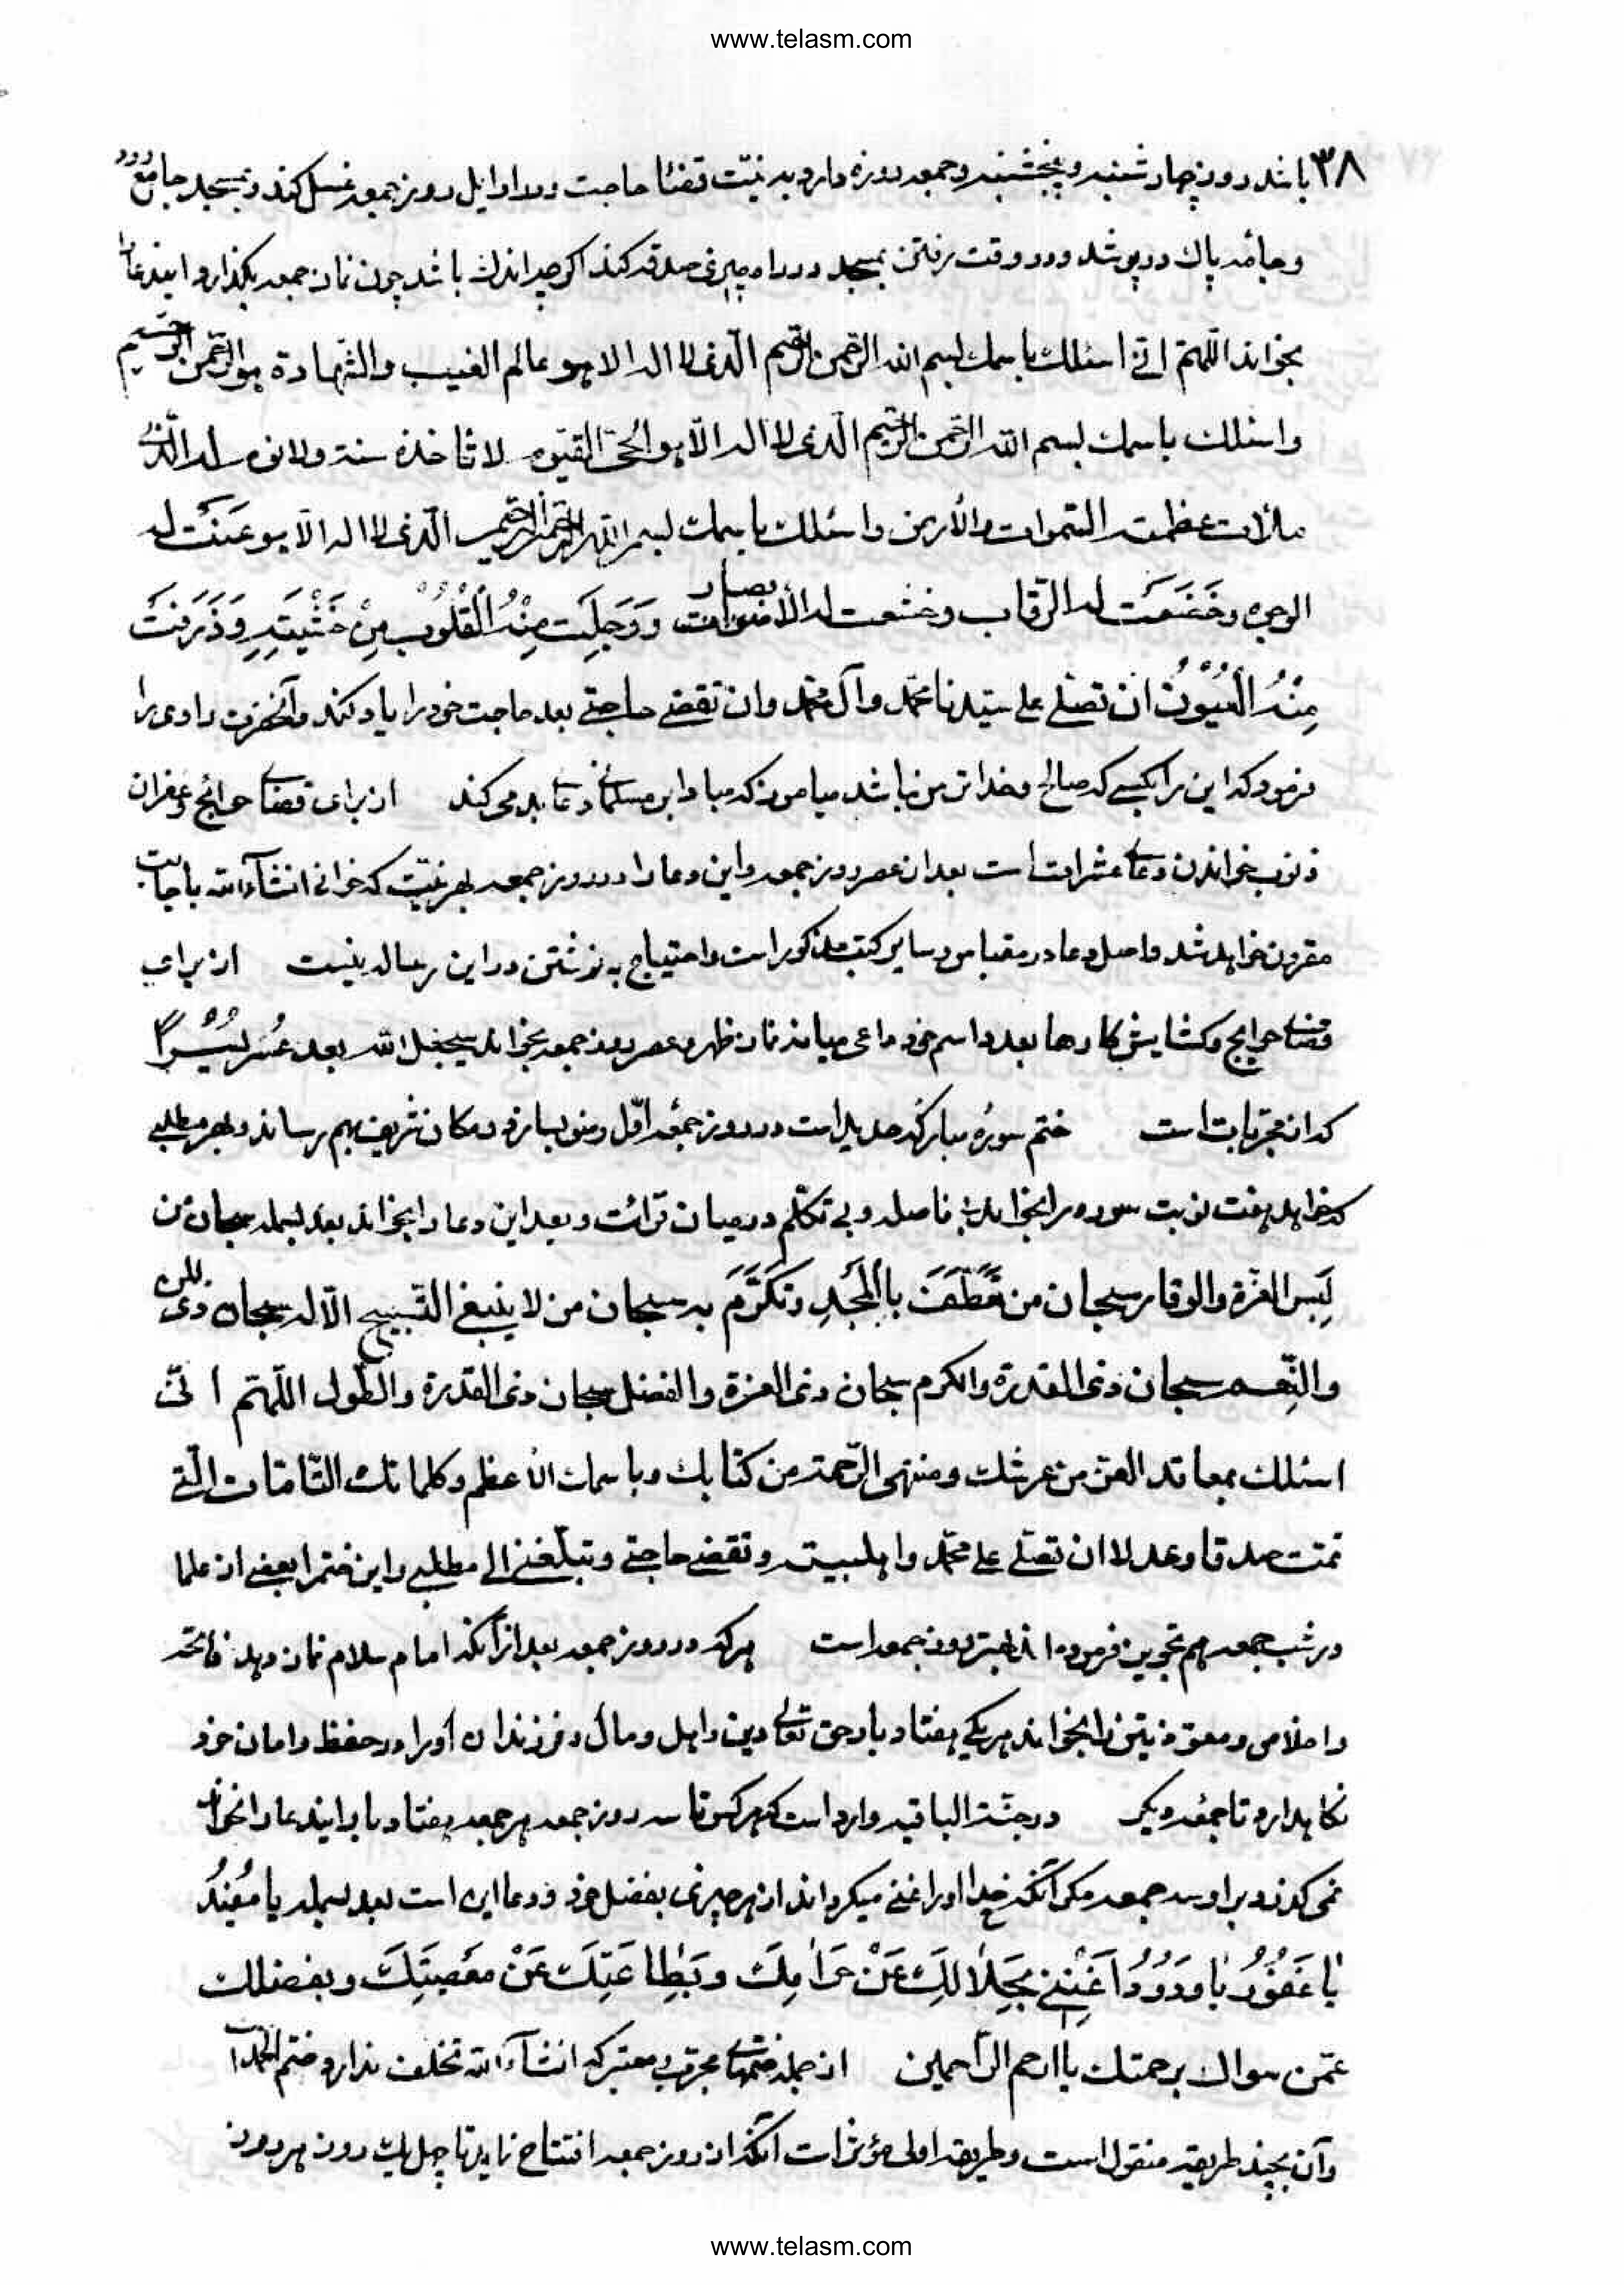 www.telasm.com
۳۸ باشد روز چهارشنبه و پنجشنبه و جمعه روزه دارد به نیّت قضا حاجت و در اوایل روز جمعه غسل کند و بمسجد جامع رود
و جامه پاک درپوشد و در وقت رفتن بمسجد در راه چیزی صدقه کند اکر چه اندک باشد چون نماز جمعه بکذارد ایندعا را
بخواند اللّهمّ انّی اسئلک باسمک بسم الله الرّحمن الرّحیم الّذی لا اله الا هو عالم الغیب والشّهادة هو الرّحمن الرّحیم
واسئلک باسمک بسم الله الرّحمن الرّحیم الّذی لا اله الّا هو الحیّ القیّوم لا تاخذه سنة ولا نوم له الّذی
ملأت عظمته السّموات والأرض واسئلک باسمک بسم الله الرّحمن الرّحیم الّذی لا اله الّا هو عَنَت له
الوجوه وخَضَعَت له الرّقاب وخشعت له الأبصار ووَجِلَت مِنْهُ الْقُلُوبُ مِنْ خَشْیَتِهِ وَذَرَفَت
مِنْهُ الْعُیُوْنُ ان تصلّی علی سیّدنا محمّد وآل محمّد وان تقضی حاجتی بعد حاجت خود را یاد کند و آنحضرت راوی را
فرمود که این را بکسی که صالح و خداترس نباشد میاموز که مبادا بر مسلمانی دعا بد می کند از برای قضای حوائج و غفران
ذنوب خواندن دعای عشرات است بعد از عصر روز جمعه و این دعا را در روز جمعه بهر نیّت که خوانی انشآءالله باجابت
مقرون خواهد شد و اصل دعا در مقباس و سایر کتب مذکور است و احتیاج به نوشتن در این رساله نیست از برای
قضای حوایج و کشایش کارها بعدد اسم خود ما بین نماز ظهر و عصر روز جمعه بخواند سیجعل الله بعد عُسْرٍ یُسْراً
که از مجرّبات است ختم سورهٔ مبارکه حدید است در روز جمعه اوّل وضو بسازد و مکان شریف بهم رساند و بهر مطلبی
که خواهد هفت نوبت سوره را بخواند بی فاصله و بی تکلّم در میان قرائت و بعد این دعا را بخواند بعد بسمله سبحان من
لَبِسَ العزّة والوقار سبحان من تَعَطَّفَ بِالْمَجْدِ وتَکَرَّمَ به سبحان من لا ینبغی التّسبیح الّا له سبحان ذی المنّ
والنِّعَم سبحان ذی القدرة والکرم سبحان ذی العزة والفضل سبحان ذی القدرة والطّول اللّهمّ انّی
اسئلک بمعاقد العزّ من عرشک ومنتهی الرّحمة من کتابک وباسمک الأعظم وکلماتک التّامّات الّتی
تمّت صدقا وعدلا ان تصلّی علی محمّد واهلبیته وتقضی حاجتی وتبلّغنی الی مطلبی و این ختم را بعضی از علما
در شب جمعه هم تجویز فرموده اند بهتر روز جمعه است هر که در روز جمعه بعد از آنکه امام سلام نماز دهد فاتحه
و اخلاص و معوّذتین را بخواند هر یکی هفتاد بار حق تعالی دین و اهل و مال و فرزندان او را در حفظ و امان خود
نکاهدارد تا جمعه دیکر در جنّة الباقیه وارد است که هر کس تا سه روز جمعه هر جمعه هفتاد بار ایندعا را بخواند
نمی کذرد بر او سه جمعه مکر آنکه خدا او را غنی میکرداند از هر چیزی بفضل خود و دعا این است بعد بسمله یا مُعِیْدُ
یا غَفُوْرُ یا وَدُوْدُ اَغْنِنِیْ بِحَلالِکَ عَنْ حَرامِکَ وبِطاعَتِکَ عَنْ مَعْصِیَتِکَ وبفضلک
عمّن سواک برحمتک یا ارحم الرّاحمین از جمله ختمهای مجرّب و معتبر که انشآءالله تخلف ندارد ختم الحمد است
و آن بچند طریقه منقول است و طریقه اولی مؤثر است آنکه از روز جمعه افتتاح نماید تا چهل یک روز هر روز
www.telasm.com